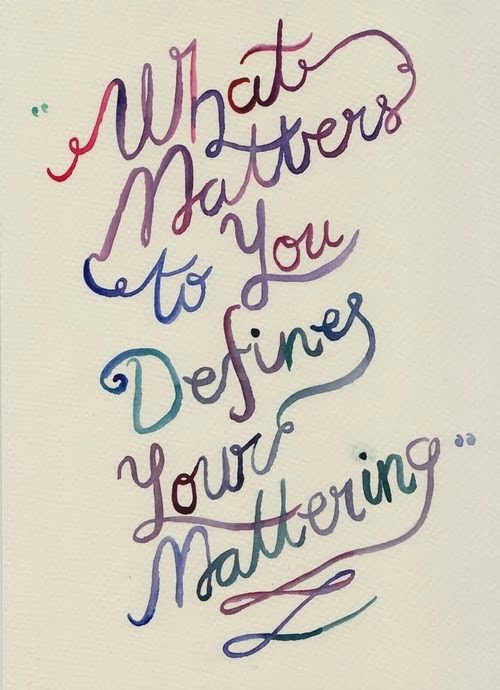 "What
Matters
to You
Defines
Your
Mattering"